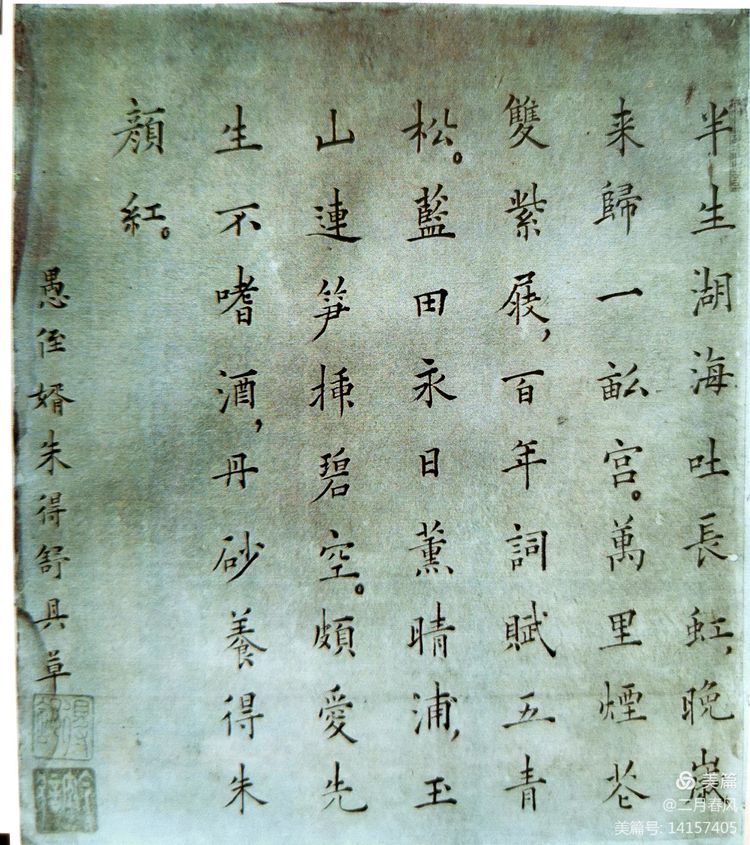 半生湖海吐長虹，晚嵗
来歸一畝宫。萬里煙花
雙紫屐，百年詞賦五青
松。藍田永日薰晴浦，玉
山連笋揷碧空。頗愛先
生不嗜酒，丹砂養得朱
顏紅。
愚侄婿朱得舒具草
美篇
@二月春风
美篇号: 14157405